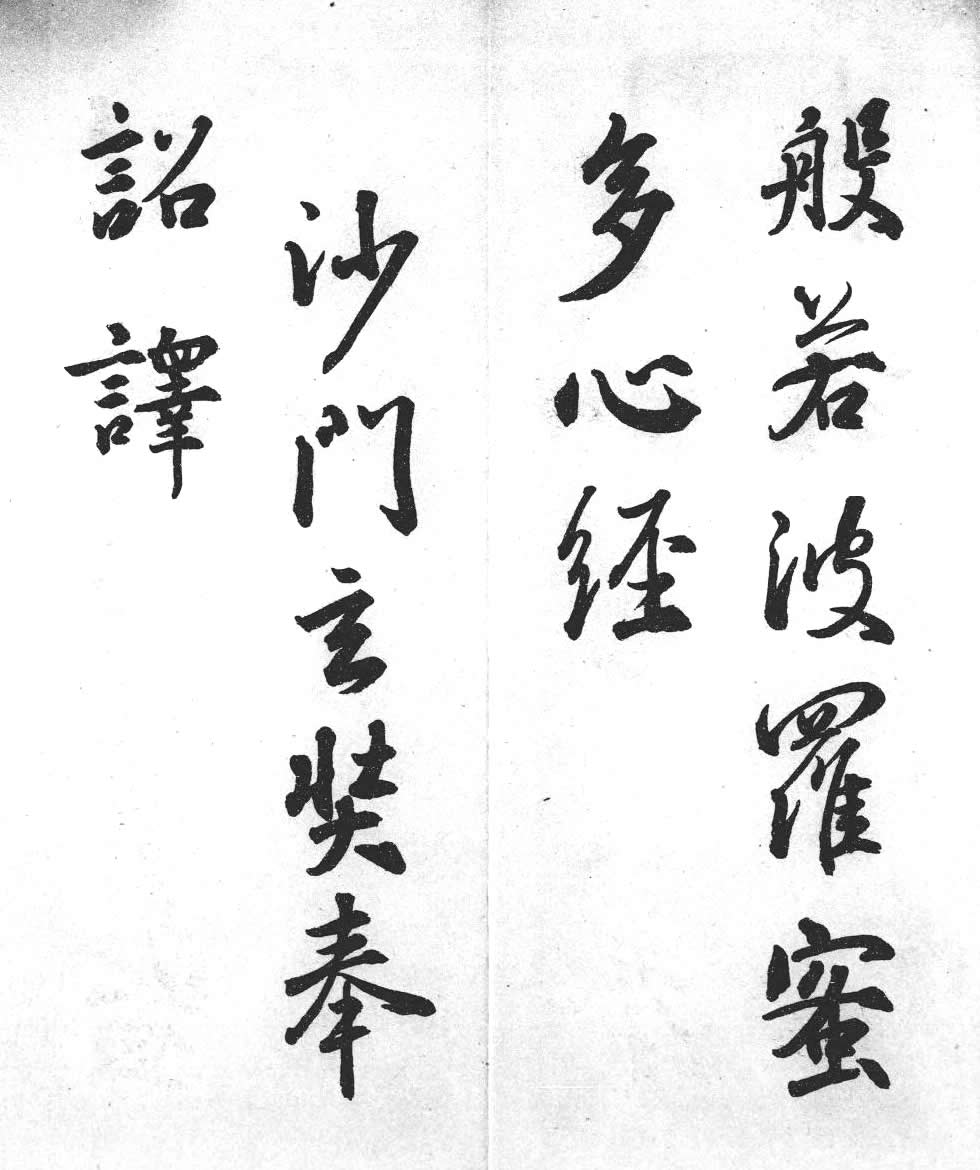 般若波羅蜜
多心經
沙門玄奘奉
詔譯